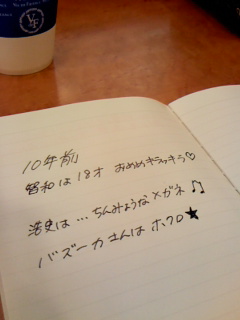 10年前
昭和は18才 おめめキラッキラ♡
浩史は…ちんみょうなメガネ♫
バズーカさんはホクロ★